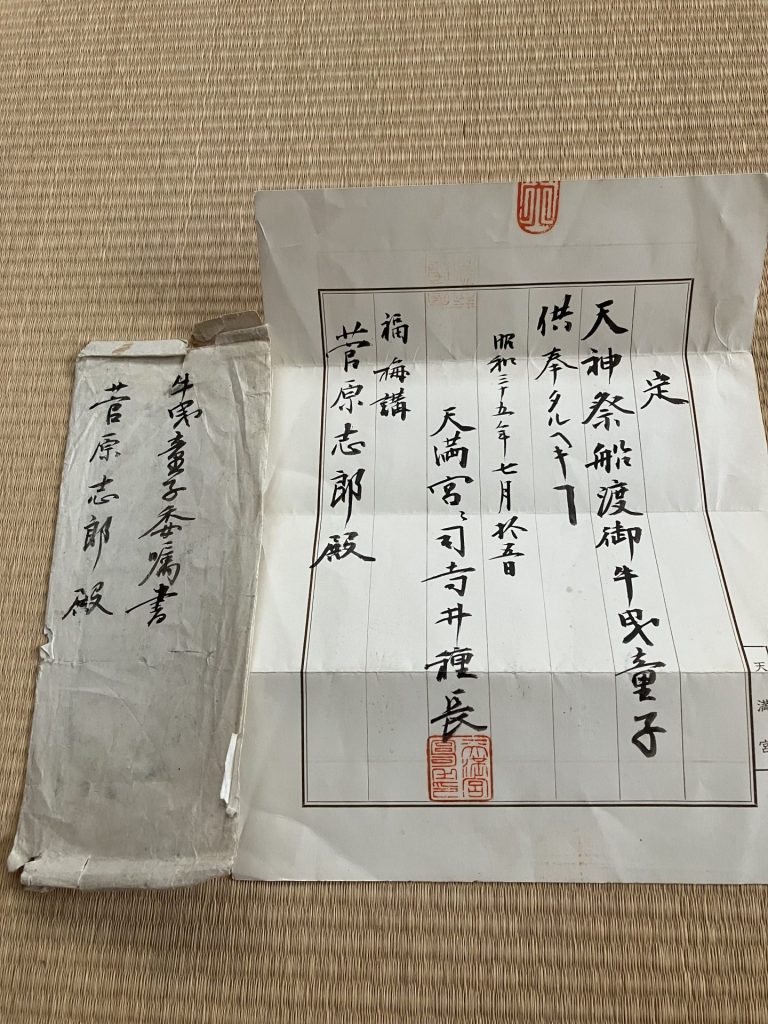 定
天神祭船渡御牛曳童子
供奉タルヘキヿ
昭和三十五年七月拾五日
天満宮〻司寺井種長
福梅講
菅原志郎殿
天満宮
牛曳童子委嘱書
菅原志郎殿